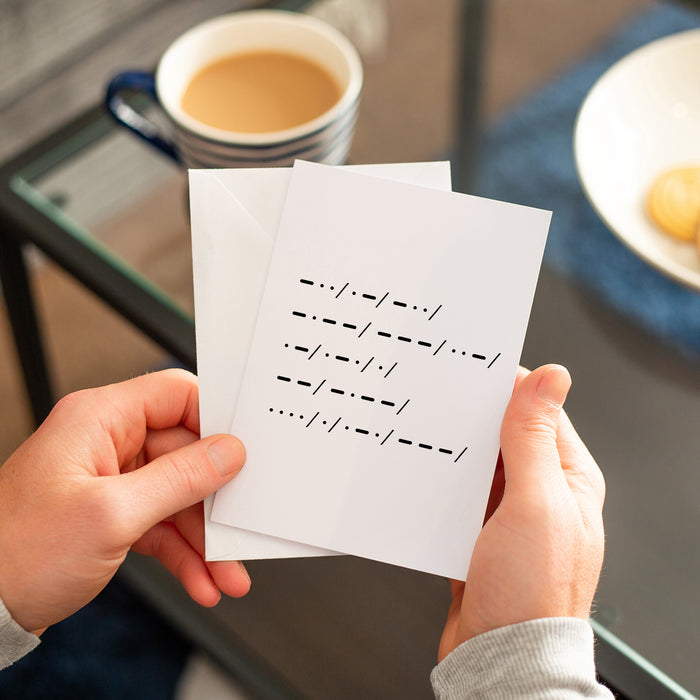 −··/·−/−··/
−·−−/−−−/··−/
·−/·−·/·/
−−/−·−−/
····/·/·−·/−−−/